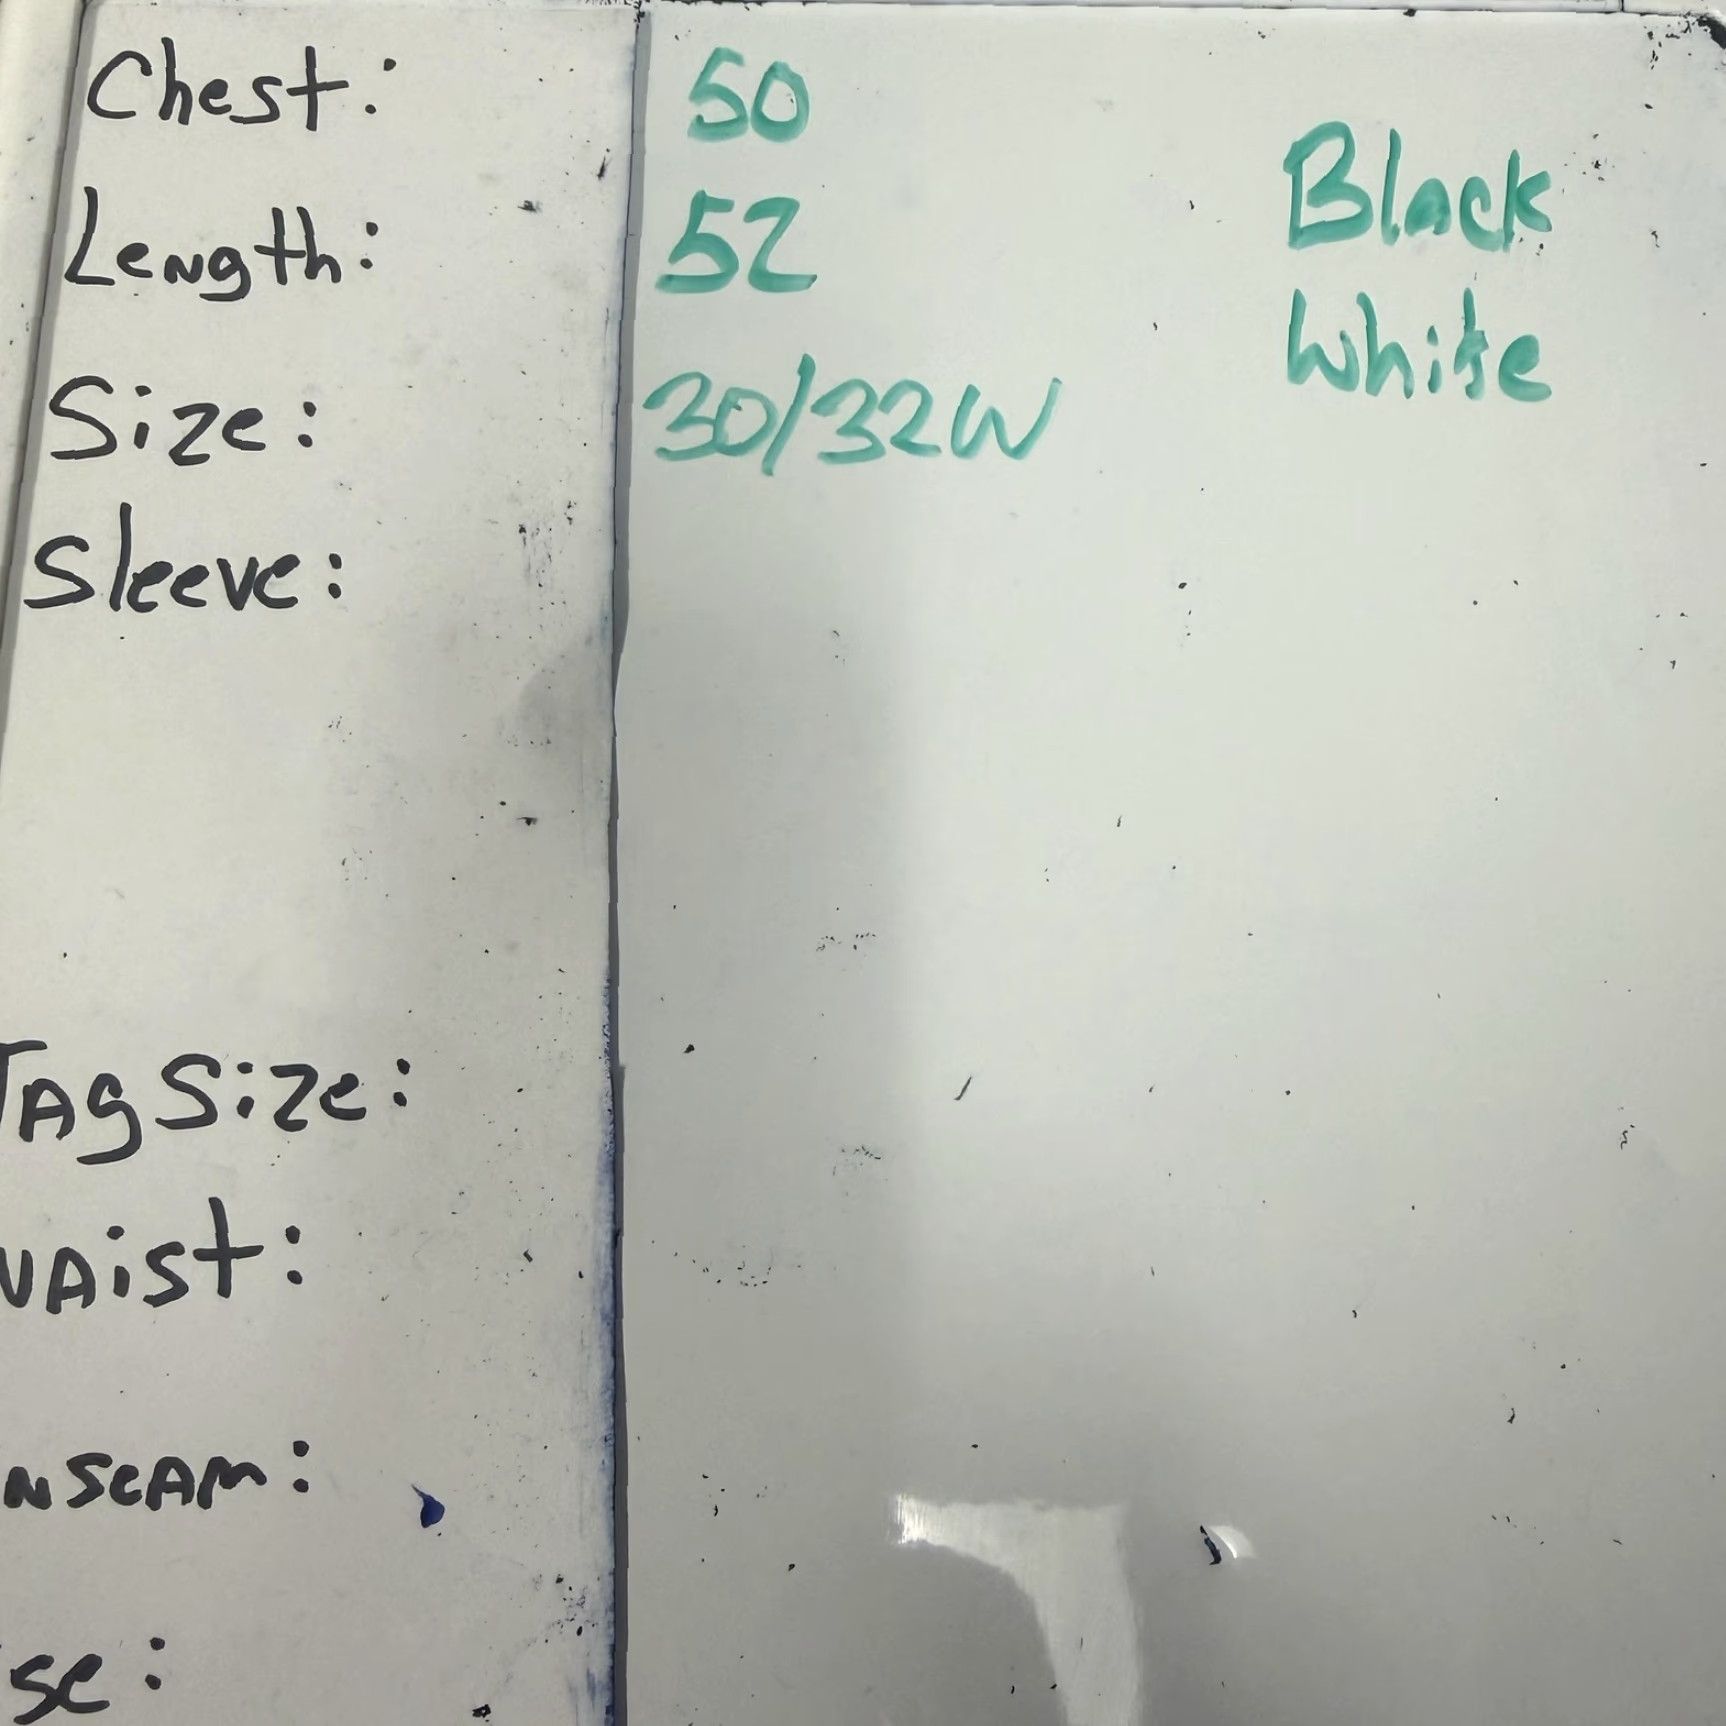 Chest: 50
Length: 52
Size: 30/32W
Sleeve:
Black
White
Tag Size:
Waist:
nseam:
se: